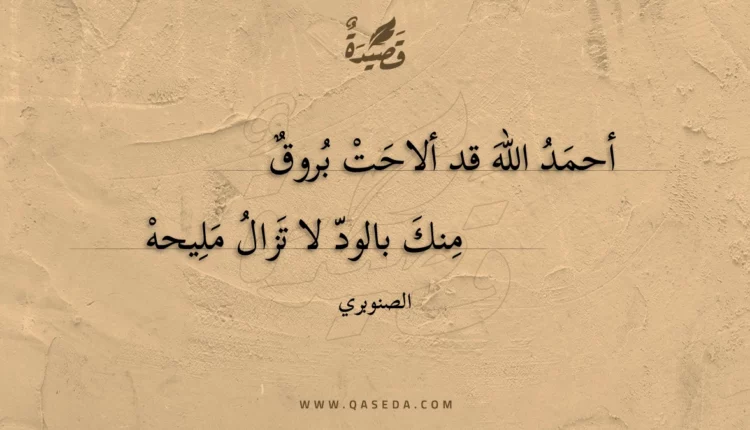 قَصِيدَةٌ
أحمَدُ اللهَ قد ألاحَتْ بُروقٌ
مِنكَ بالودّ لا تَزالُ مَلِيحهْ
الصنوبري
WWW.QASEDA.COM